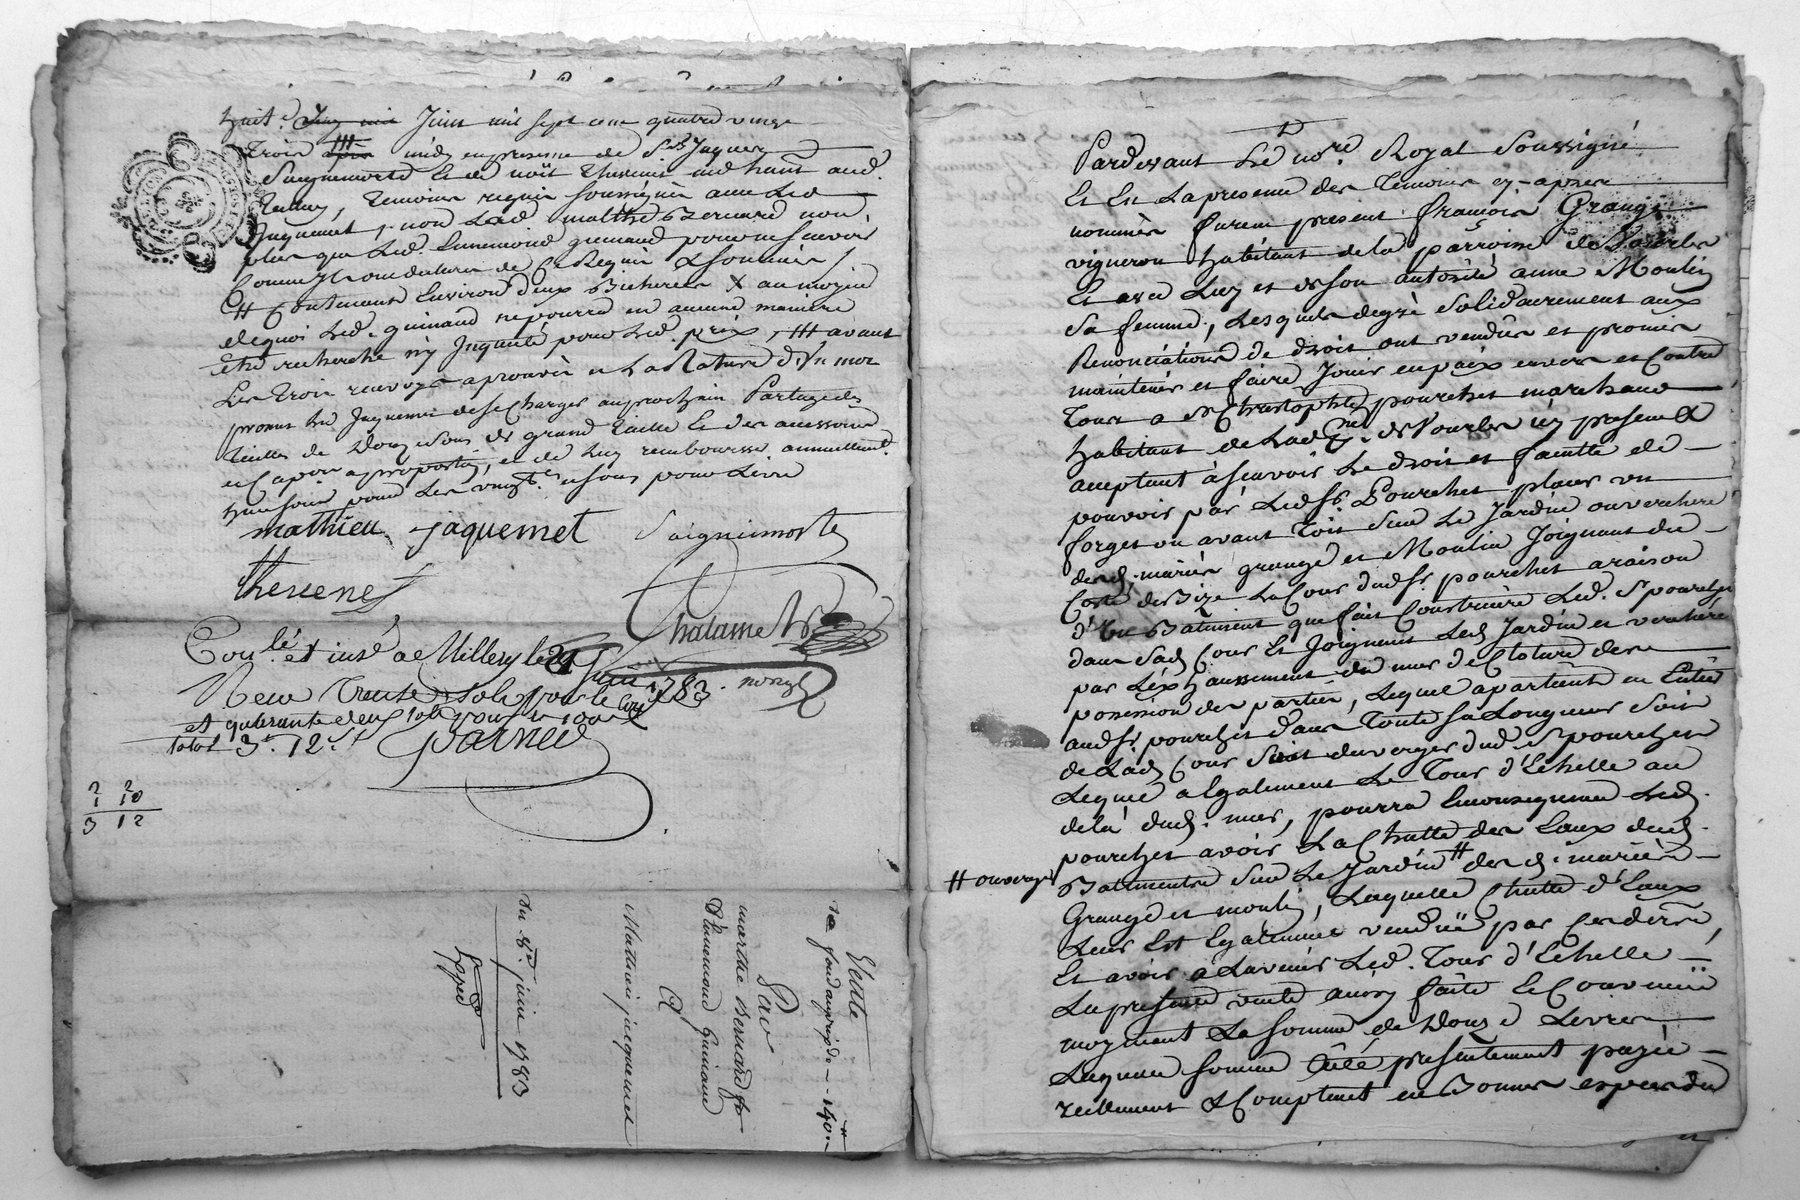 huit. Juin mil sept cent quatre vingt
trois midy en presence de Srs Jaques
Saignimorte et de noit Thevenet md habt aud.
temoins requis soussignés avec led.
Jaquemet, non lad. Marthe Bernard non
plus que led. Ennemond guinand pour ne scavoir
comme ils ont declaré de ce Requis & sommés /
# Contenant Environ deux Bicherées X au moyen
dequoi Led. guinand ne pourra en aucune maniere
être recherché n'y Inquieté pour Led. prix, ### avant
Les trois renvoys aprouvés et la Rature d'un mot
promet led. Jaquemet de se charger au prochain Partage des
tailles de Douze sous de grand taille et des accessoires
et Capon a proportion, et de luy rembourser annuellement
pour les vingt. a sous pour Livre
mathieu jaquemet Saignimorte
thevenet
Chalamel
noryal
Conlé et insé a Millery le 21 Juin 1783.
Reçu Trente sols pour le Con
et quarante deux sols pour le 100e
total 3tt 12s
Parnet
2 20
1
3 12
Vente
de fond au prix de - 140tt
Par
marthe Bernard fe
d'Ennemond Guinand
A
Mathieu jacquemet
Du 8e. juin 1783
Exped
Pardevant Le nore. Royal Soussigné
Et En La presence des Temoins cy-apres
nommés furent presents françois Grange
vigneron habitant de la parroisse de Vourles
Et avec Luy et de son autorité anne Moulin
Sa femme, Lesquels degré solidairement aux
Renonciations de droit ont vendus et promis
maintenir et faire Jouir en paix envers et Contre
Tous a Sr Christophle pourchet marchand
habitant de Lade. pse. de Vourles icy present &
acceptant à scavoir Le droit et faculté de
pouvoir par Led. Sr. Pourchet placer un
forget ou avant toit sur Le Jardin ou verchere
desd. mariés grange et Moulin Joignant du
Costé de Bize La Cour dud. Sr. pourchet a raison
d'un Batiment que fait Construire Led. Sr pourchet
dans Sad. Cour Et Joignant Led. Jardin et verchere
par L'exhaussement du mur de Cloture des
possession des parties, Lequel apartient en Entier
aud. Sr. pourchet dans Toute sa Longueur Soit
de Lad. Cour Soit du verger dud. Sr pourchet
Lequel a Egalement Le Tour d'Echelle au
dela dud. mur, pourra En consequence Led.
pourchet avoir La Chutte des Eaux dud.
Batiment sur Le Jardin # desd. mariés
# ou verger
Grange et moulin, Laquelle Chutte d'Eaux
Leur Est Egalement vendüe par Ces derniers,
Et avoir à Lavenir Led. Tour d'Echelle
La presente vente aussy faite Et Convenüe
moyennant La somme de Douze Livres,
Laquelle somme a été presentement payée
reellement & Comptant en Bonnes especes du